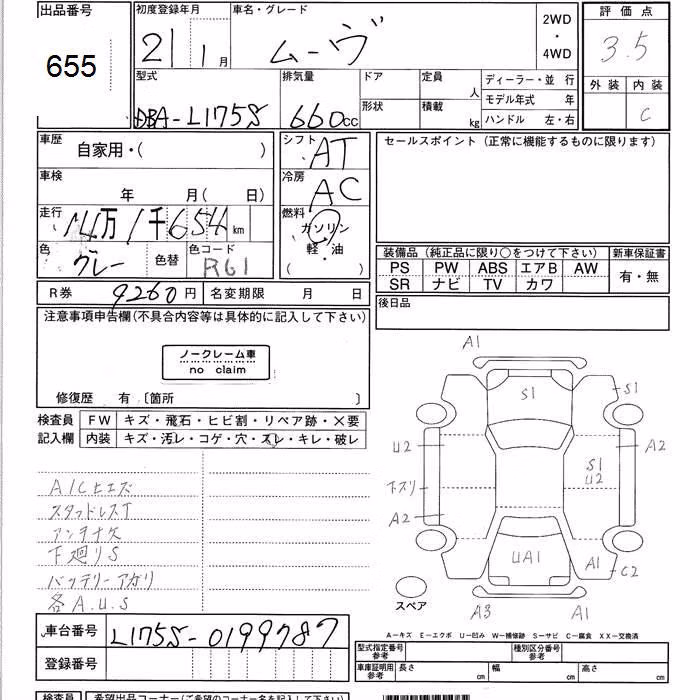 出品番号
655
初度登録年月
21 1月
車名・グレード
ムーヴ
2WD
・
4WD
評価点
3.5
外装 内装
C
型式
DBA-L175S
排気量
660cc
ドア
形状
定員 人
積載 kg
ディーラー・並 行
モデル年式 年
ハンドル 左・右
車歴
自家用・( )
車検
年 月( 日)
走行
14万1千654km
色
グレー
色替
色コード
R61
シフト
AT
冷房
AC
燃料
ガソリン
軽・油
( )
セールスポイント (正常に機能するものに限ります)
装備品 (純正品に限り○をつけて下さい)
PS PW ABS エアB AW
SR ナビ TV カワ
新車保証書
有・無
R券 9260円 名変期限 月 日
後日品
注意事項申告欄(不具合内容等は具体的に記入して下さい)
ノークレーム車
no claim
修復歴 有 〔箇所 〕
検査員
記入欄
FW キズ・飛石・ヒビ割・リペア跡・×要
内装 キズ・汚レ・コゲ・穴・スレ・キレ・破レ
A/Cヒエズ
スタッドレスT
アンテナ欠
下廻りS
バッテリーアガリ
各A.U.S
A1
S1
S1
U2
A2
S1
U2
下スリ
A2
UA1
A1
C2
スペア
A3
A1
A-キズ E-エクボ U-凹み W-補修跡 S-サビ C-腐食 XX-交換済
車台番号
L175S-0199787
登録番号
型式指定番号
参考
種別区分番号
参考
車庫証明用
参考
長さ cm 幅 cm 高さ cm
検査員
希望出品コーナー(ご希望のコーナー名を記入下さい)